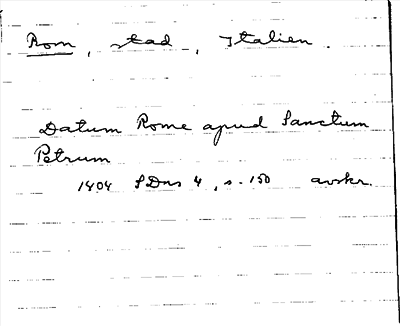 Rom, stad, Italien.
Datum Rome apud Sanctum
Petrum
1404 SDns 4, s. 150 avskr.